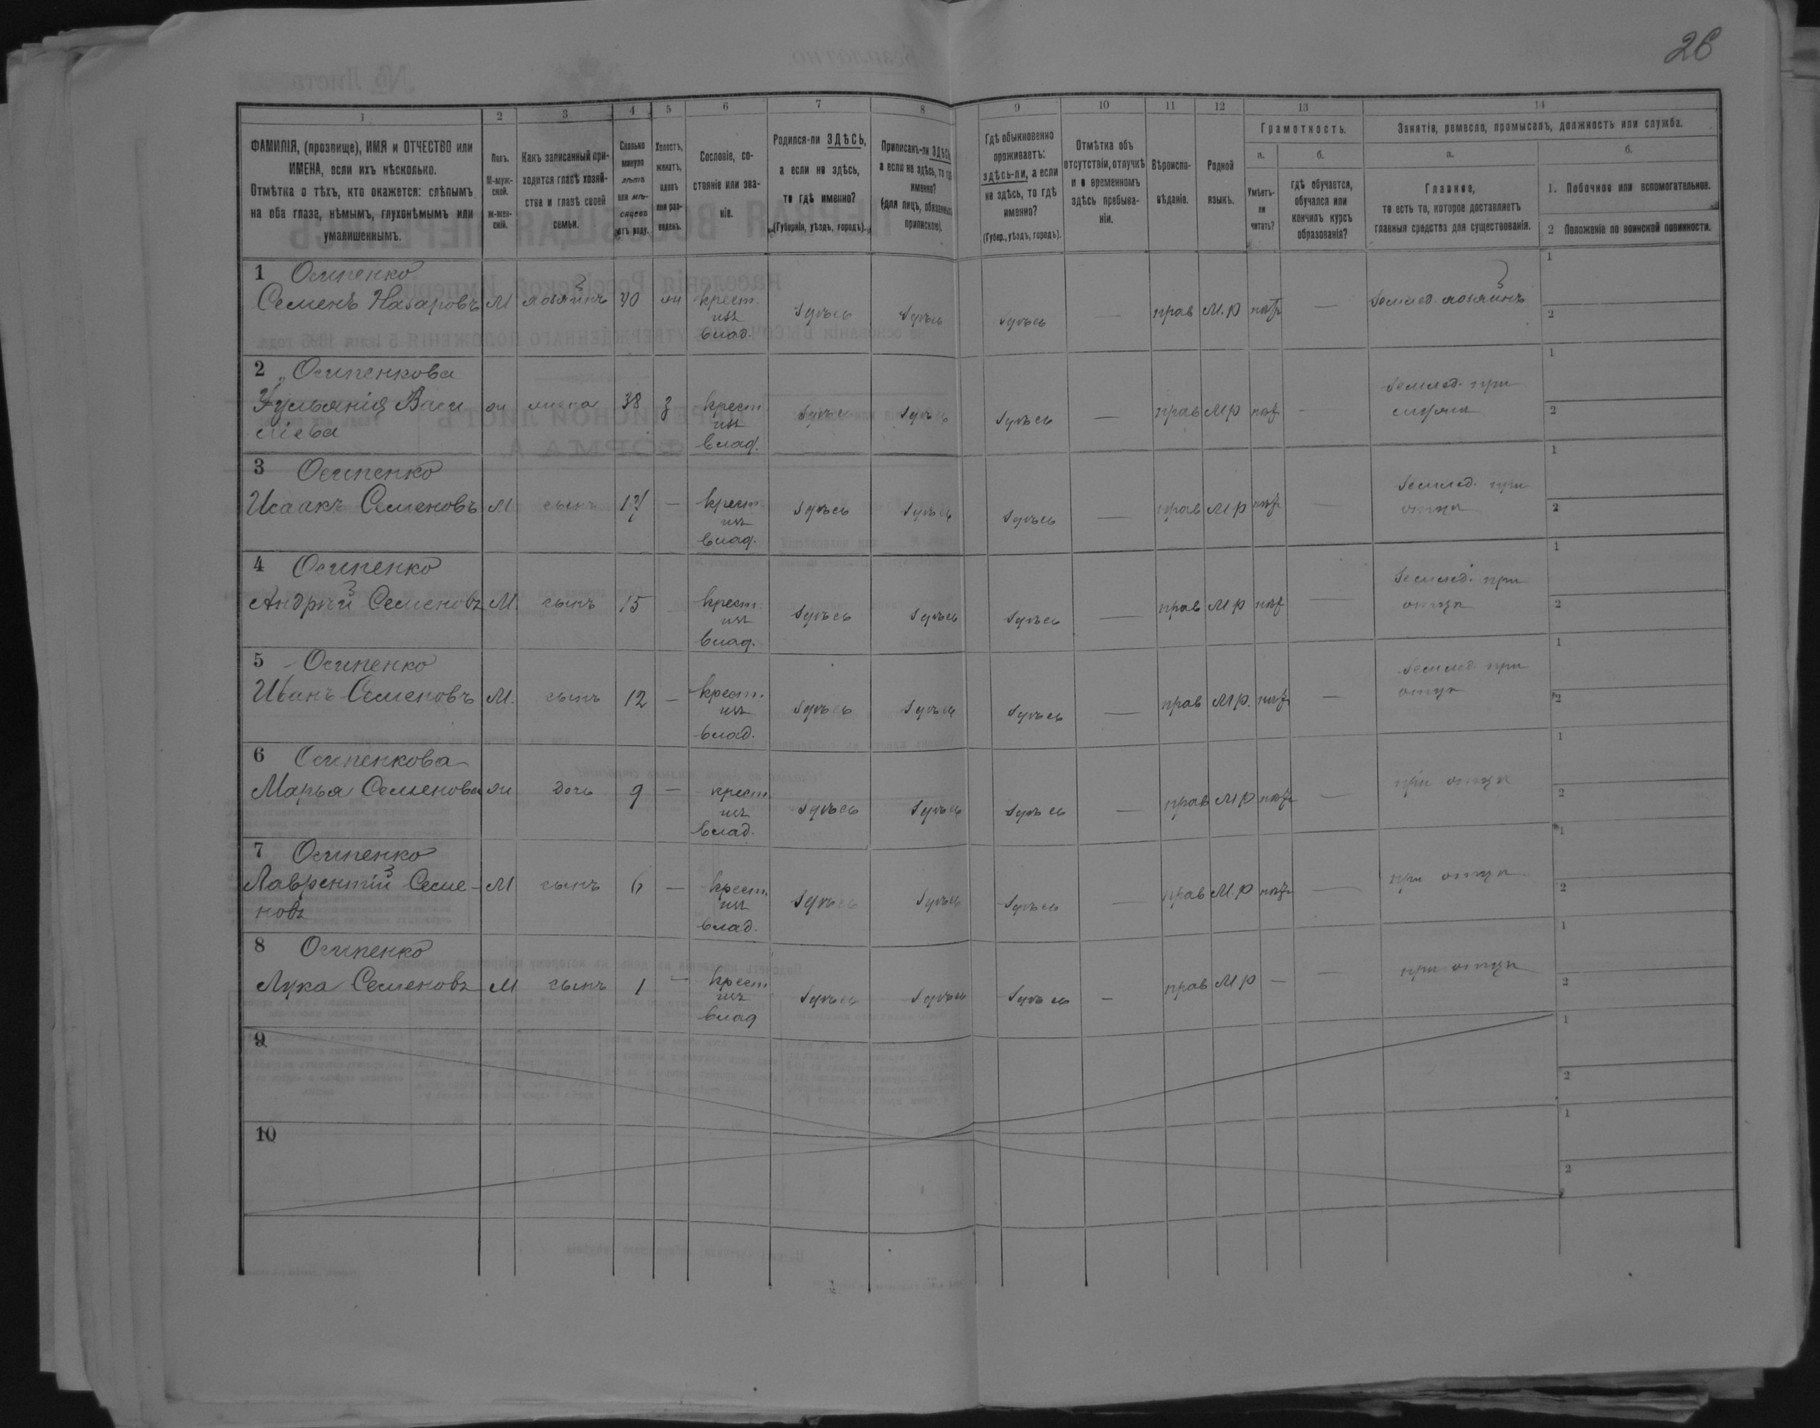 26
1 2 3 4 5 6 7 8 9 10 11 12 13 14
ФАМИЛІЯ, (прозвище), ИМЯ и ОТЧЕСТВО или
ИМЕНА, если ихъ нѣсколько.
Отмѣтка о тѣхъ, кто окажется: слѣпымъ
на оба глаза, нѣмымъ, глухонѣмымъ или
умалишеннымъ.
Полъ.
М-муж-
ской.
ж-жен-
скій.
Какъ записанный при-
ходится главѣ хозяй-
ства и главѣ своей
семьи.
Сколько
минуло
лѣтъ
или мѣ-
сяцевъ
отъ роду.
Холостъ,
женатъ,
вдовъ
или раз-
веденъ.
Сословіе, со-
стояніе или зва-
ніе.
Родился-ли ЗДѢСЬ,
а если не здѣсь,
то гдѣ именно?
(Губернія, уѣздъ, городъ).
Приписанъ-ли ЗДѢСЬ,
а если не здѣсь, то гдѣ
именно?
(для лицъ, обязанныхъ
припискою).
Гдѣ обыкновенно
проживаетъ:
здѣсь-ли, а если
не здѣсь, то гдѣ
именно?
(Губер., уѣздъ, городъ).
Отмѣтка объ
отсутствіи, отлучкѣ
и о временномъ
здѣсь пребыва-
ніи.
Вѣроиспо-
вѣданіе.
Родной
языкъ.
Грамотность.
а.
Умѣетъ-
ли
читать?
б.
гдѣ обучается,
обучался или
кончилъ курсъ
образованія?
Занятіе, ремесло, промыселъ, должность или служба.
а.
Главное,
то есть то, которое доставляетъ
главныя средства для существованія.
б.
1. Побочное или вспомогательное.
2 Положеніе по воинской повинности.
1 Осипенко
Семенъ Назаровъ М хозяинъ 40 жн крест.
изъ
влад. Здѣсь Здѣсь Здѣсь — прав М.р нѣт — землед. хозяинъ 1 2
2 Осипенкова
Ульянія Васи
ліева жн жена 38 з крест
изъ
влад. Здѣсь Здѣсь Здѣсь — прав М р нѣт — землед. при
мужѣ 1 2
3 Осипенко
Исаакъ Семеновъ М сынъ — крест
изъ
влад. Здѣсь Здѣсь Здѣсь — прав М р нѣт — землед. при
отцѣ 1 2
4 Осипенко
Андрѣй Семеновъ М. сынъ 15 крест.
изъ
влад. Здѣсь Здѣсь Здѣсь — прав М р нѣт — землед. при
отцѣ 1 2
5 Осипенко
Иванъ Семеновъ М. сынъ 12 — крест.
изъ
влад. Здѣсь Здѣсь Здѣсь — прав М р. нѣт — землед. при
отцѣ 1 2
6 Осипенкова
Марья Семенова жн дочь 9 — крест.
изъ
влад. Здѣсь Здѣсь Здѣсь — прав М р нѣт — при отцѣ 1 2
7 Осипенко
Лаврентій Семе-
новъ М сынъ 6 — крест.
изъ
влад. Здѣсь Здѣсь Здѣсь — прав М.р нѣт — при отцѣ 1 2
8 Осипенко
Лука Семеновъ М сынъ 1 — крест
изъ
влад Здѣсь Здѣсь Здѣсь — прав М р — — при отцѣ 1 2
9 1 2
10 1 2